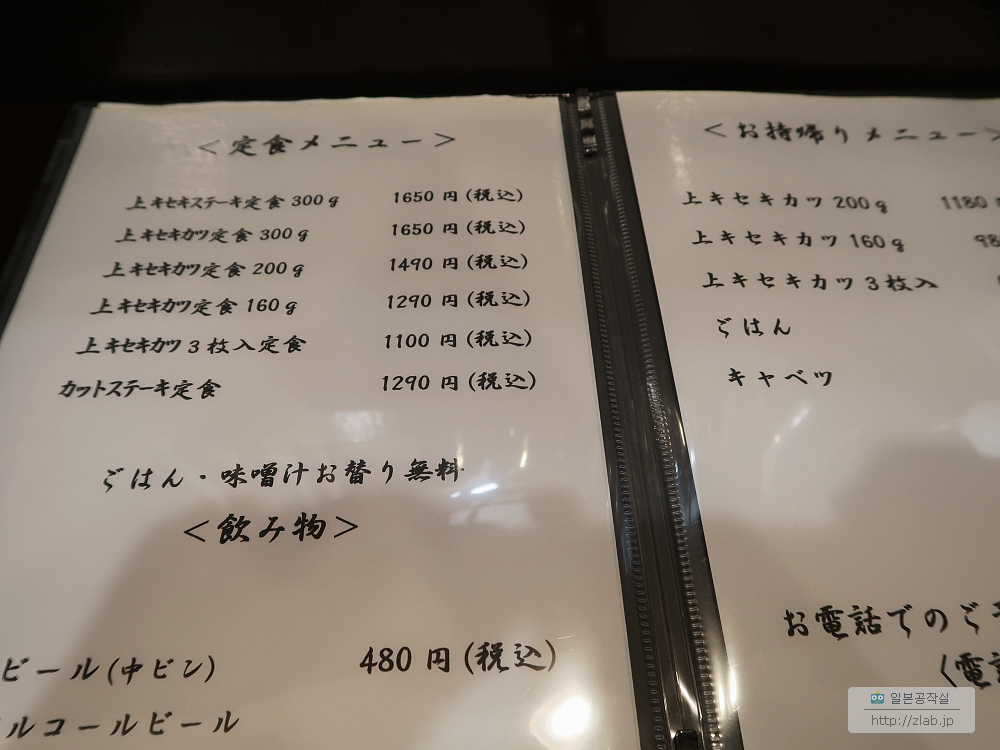 ＜定食メニュー＞
上キセキステーキ定食 300g 1650 円(税込)
上キセキカツ定食 300g 1650 円(税込)
上キセキカツ定食 200g 1490 円(税込)
上キセキカツ定食 160g 1290 円(税込)
上キセキカツ 3 枚入定食 1100 円(税込)
カットステーキ定食 1290 円(税込)
ごはん・味噌汁お替り無料
＜飲み物＞
ビール(中ビン) 480 円(税込)
ルコールビール
＜お持帰りメニュー＞
上キセキカツ 200g 1180
上キセキカツ 160g 98
上キセキカツ 3 枚入
ごはん
キャベツ
お電話でのご
(電話
일본공작실
http://zlab.jp